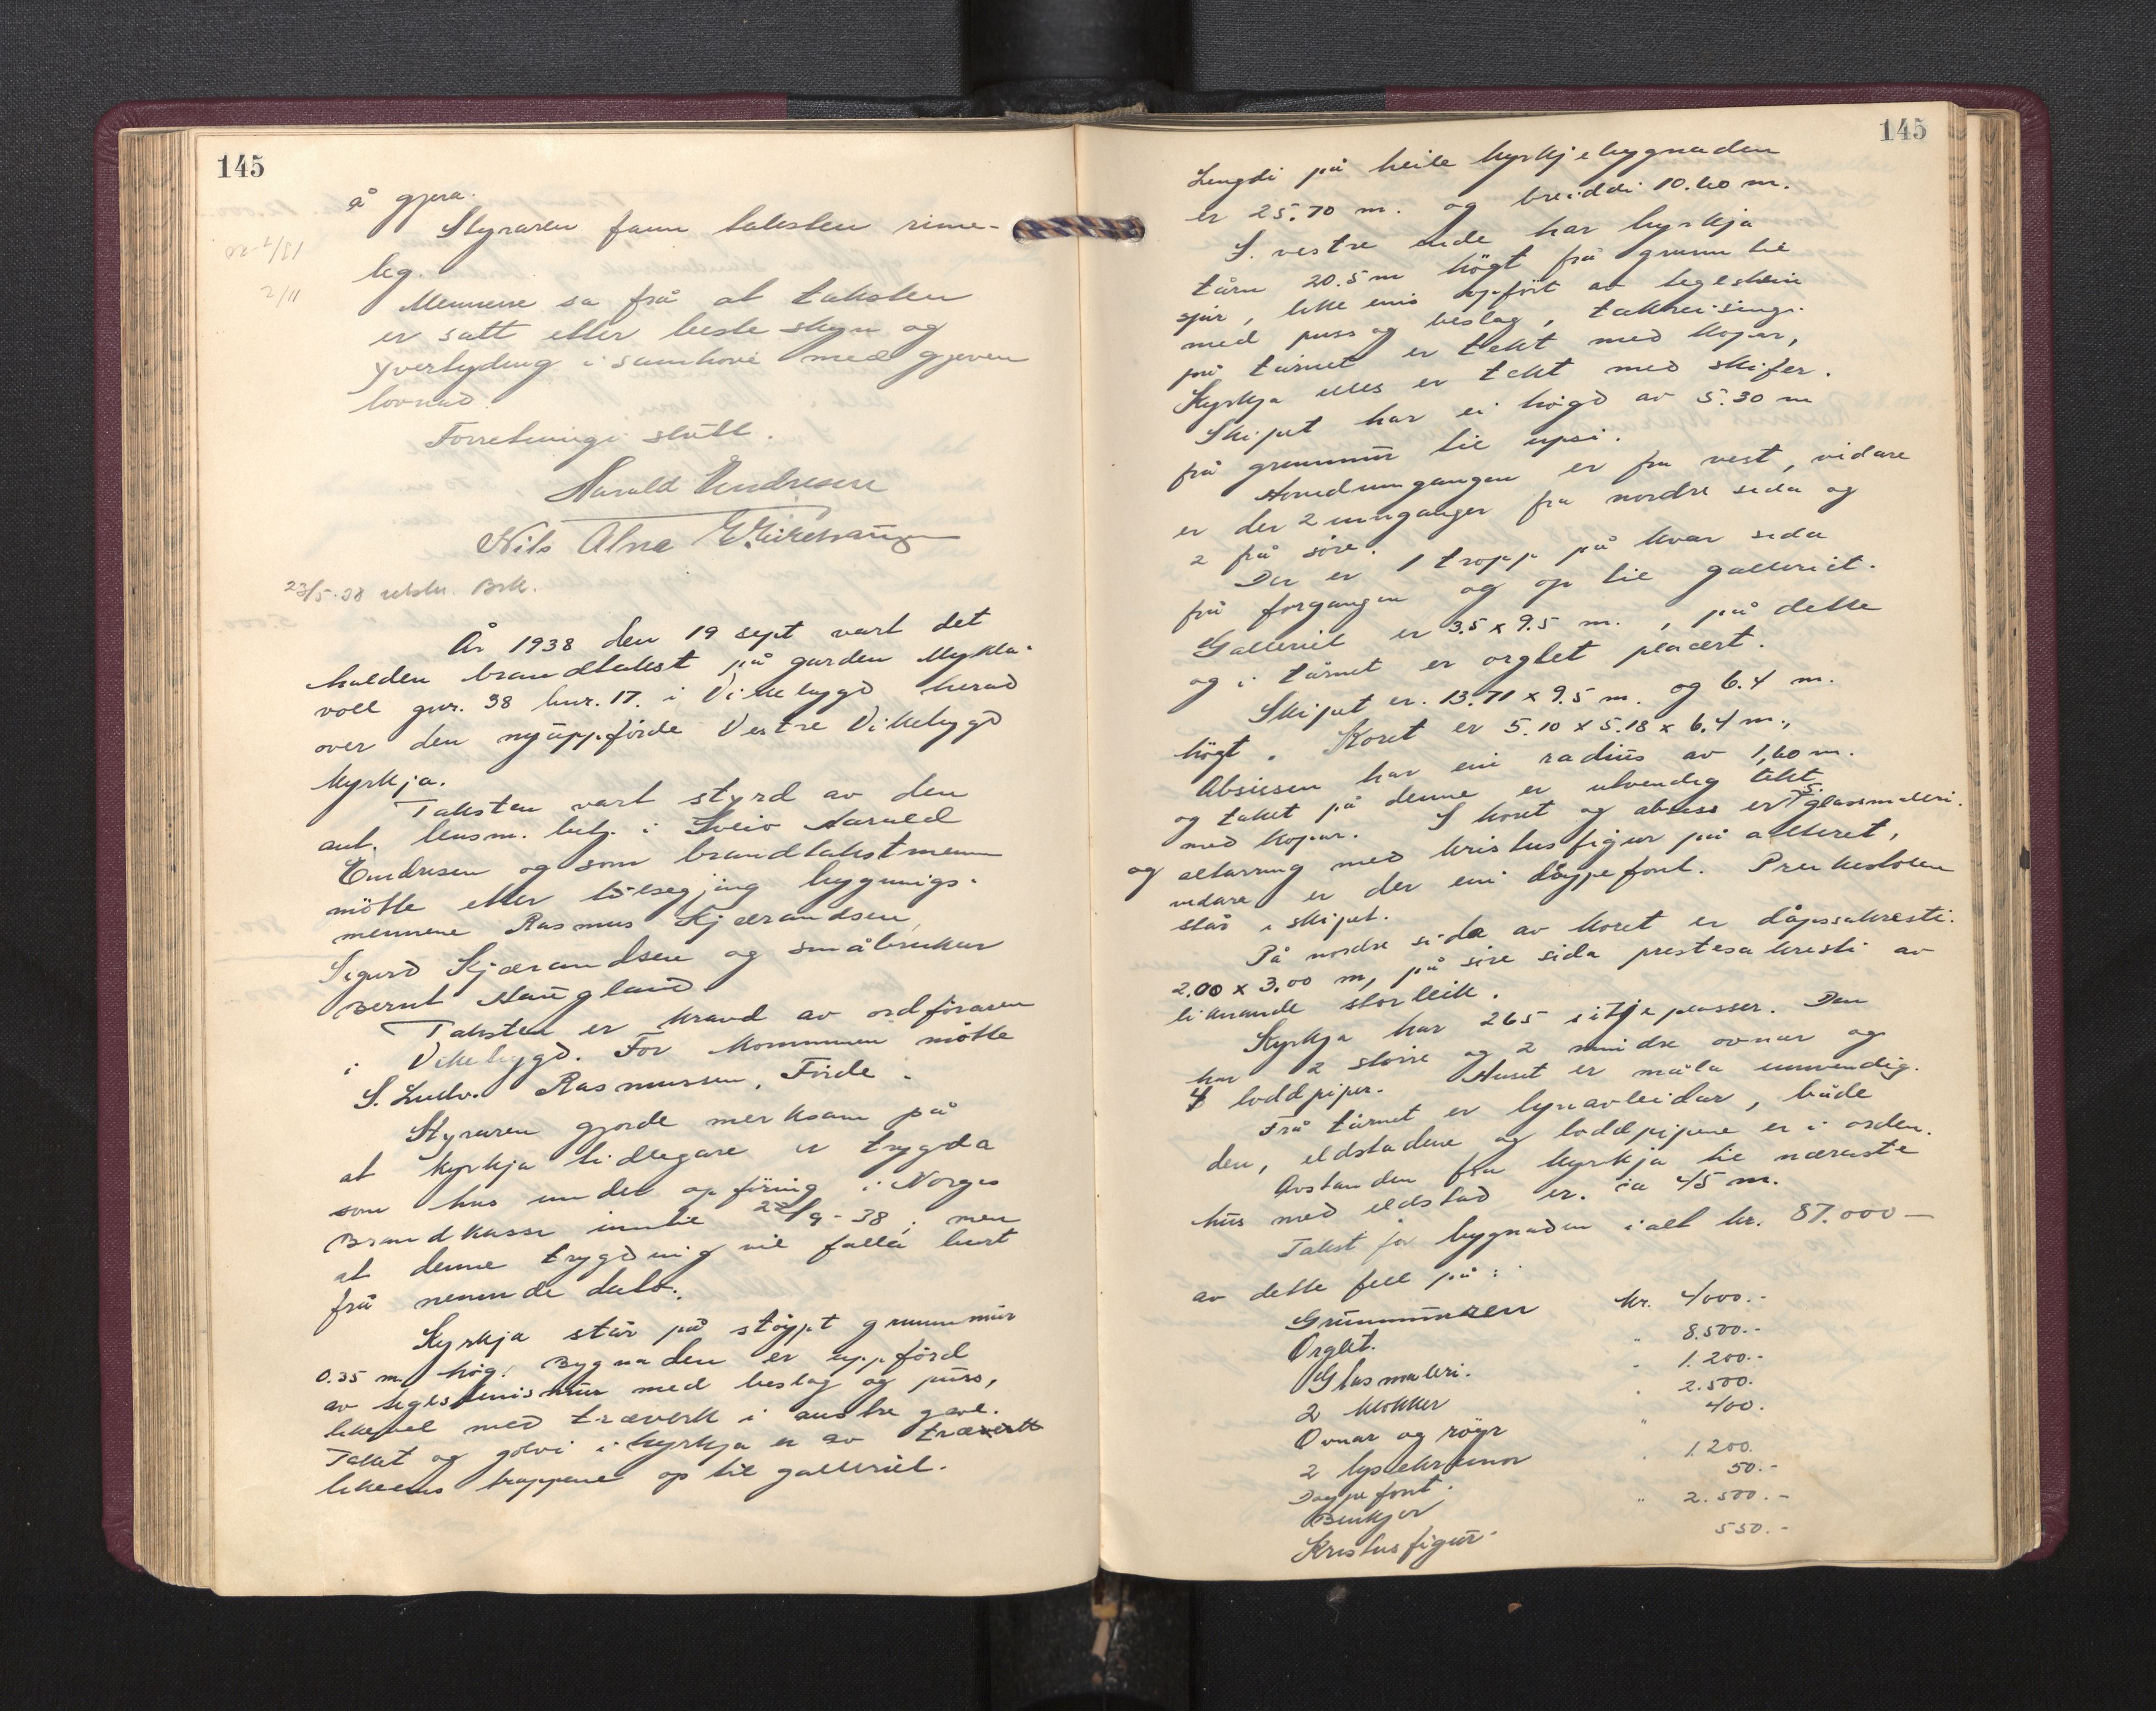 145
å gjera.
Styraren fann taksten rime-
leg.
Mennene sa frå at taksten
er satt etter beste skyn og
yvertyding i samhøve med gjeven
lovnad.
Forretningi slutt.
Harald Endresen
Nils Alne
23/5-38 utskr. Brk.
År 1938 den 19 sept vart det
halden brandtakst på garden Mykla-
voll gnr. 38 bnr. 17. i Vikebygd herad
over den nyuppförde Vestre Vikebygd
kyrkja.
Taksten vart styrd av den
aut. lensm. betj. i Sveio Harald
Endresen og som brandtakstmenn
mötte etter tilsegjing bygnings-
mennene Rasmus Kjærandsen,
Sigurd Kjærandsen og småbrukar
Bernt Haugland.
Taksten er kravd av ordföraren
i Vikebygd. For kommunen mötte
S. Ludv. Rasmussen, Förde.
Styraren gjorde merksam på
at kyrkja tidlegare er trygda
som hus under opföring i Norges
Brandkasse inntil 22/9-38, men
at denne trygding vil falla burt
frå nemnde dato.
Kyrkja står på stöypt grunnmur
0.35 m. høg. Bygnaden er uppförd
av teglsteinsmur med beslag og puss,
likevel med træverk i austre gavl.
Taket og golvi i kyrkja er av træverk
likeeins trappene op til galleriet.
145
Lengdi på heile kyrkjebygnaden
er 25.70 m. og breiddi 10.60 m.
I vestre ende har kyrkja
tårn 20.5 m högt frå grunn til
spir, like eins opfört av teglstein
med puss og beslag, takreisingi
på tårnet er tekt med kopar,
Kyrkja elles er tekt med skifer.
Skipet har ei høgd av 5.30 m
frå grunnmur til upsi.
Hovedinngangen er fra vest, vidare
er der 2 innganger fra nordre sida og
2 frå söre.
Der er 1 tropp på kvar sida
frå forgangen og op til galleriet.
Galleriet er 3.5 x 9.5 m., på dette
og i tårnet er orglet placert.
Skipet er. 13.71 x 9.5 m. og 6.4 m.
högt. Koret er 5.10 x 5.18 x 6.4 m.,
Absiesen har ein radius av 1,60 m.
og taket på denne er utvendig tekt
med kopar. I koret og absiss er 5 glassmaleri.
og altarring med kristusfigur på alteret,
vidare er der ein döypefont. Preikestolen
står i skipet.
På nordre sida av koret er dåpssakresti.
2.00 x 3.00 m, på söre sida prestesakresti av
liknande storleik.
Kyrkja har 265 sitjeplasser. Den
har 2 större og 2 mindre ovnar og
4 loddpiper. Huset er måla innvendig.
Frå tårnet er lynavleidar, både
den, eldstadene og loddpipene er i orden.
Avstanden fra kyrkja til næraste
hus med eldstad er. ca 45 m.
Takst for bygnaden i alt kr. 87.000 —
av dette fell på:
Grunnmuren kr. 4000.-
Orglet. " 8.500.-
Glasmaleri. " 1.200.-
2 klokker " 2.500.
Ovnar og röyr " 400.
2 lysekruner " 1.200.
Döypefont. 50.-
Benkjer " 2.500.-
Kristusfigur 550.-